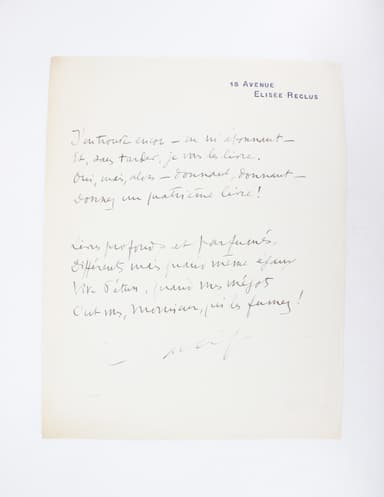 18 AVENUE
ELISÉE RECLUS
J'en trouve encor – en m'étonnant –
Et, sans tarder, je vous les livre.
Oui, mais, alors – donnant, donnant –
Donnez un quatrième livre !
Livres profonds et parfumés,
Différents mais quand même égaux
Vive l'état, quand mes mégots
C'est vous, Monsieur, qui les fumez !